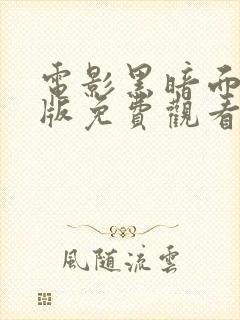 電影黑暗而
版免費觀看
風隨流雲